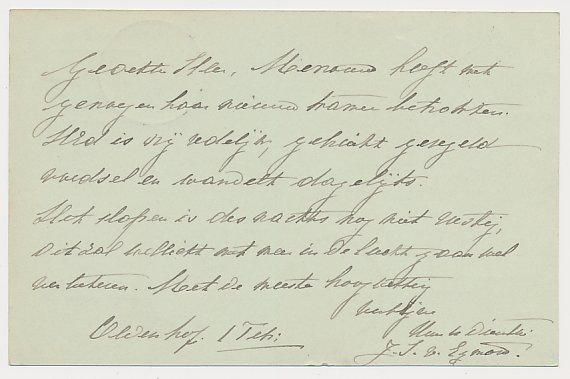 Geachte Heer, Mevrouw heeft met
genoegen haar nieuwe kamer betrokken.
is vrij redelijk, gebruikt geregeld
voedsel en wandelt dagelijks.
Het slapen is des nachts nog niet rustig,
dit zal wellicht met meer in de lucht gaan wel
verbeteren. Met de meeste hoogachting
verblijve
Oldenhof. 1 Febr.
Uw dienstw.
J. S. v. Egmond.